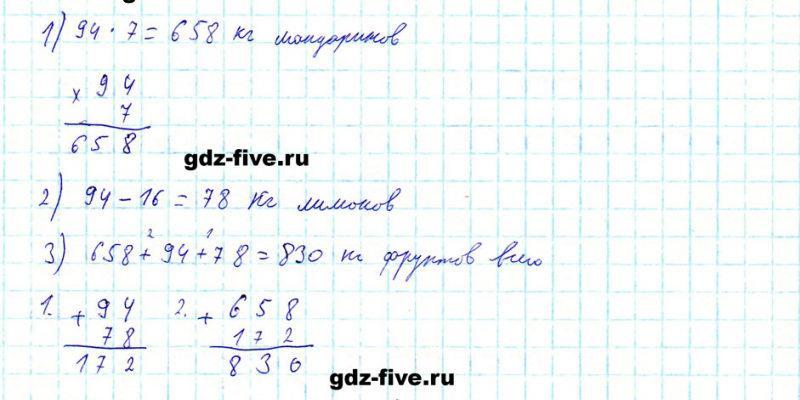 1) 94 · 7 = 658 кг мандаринов
× 94
7
658
gdz-five.ru
2) 94 - 16 = 78 кг лимонов
2 1
3) 658 + 94 + 78 = 830 кг фруктов всего
1. + 94 2. + 658
78 172
172 830
gdz-five.ru